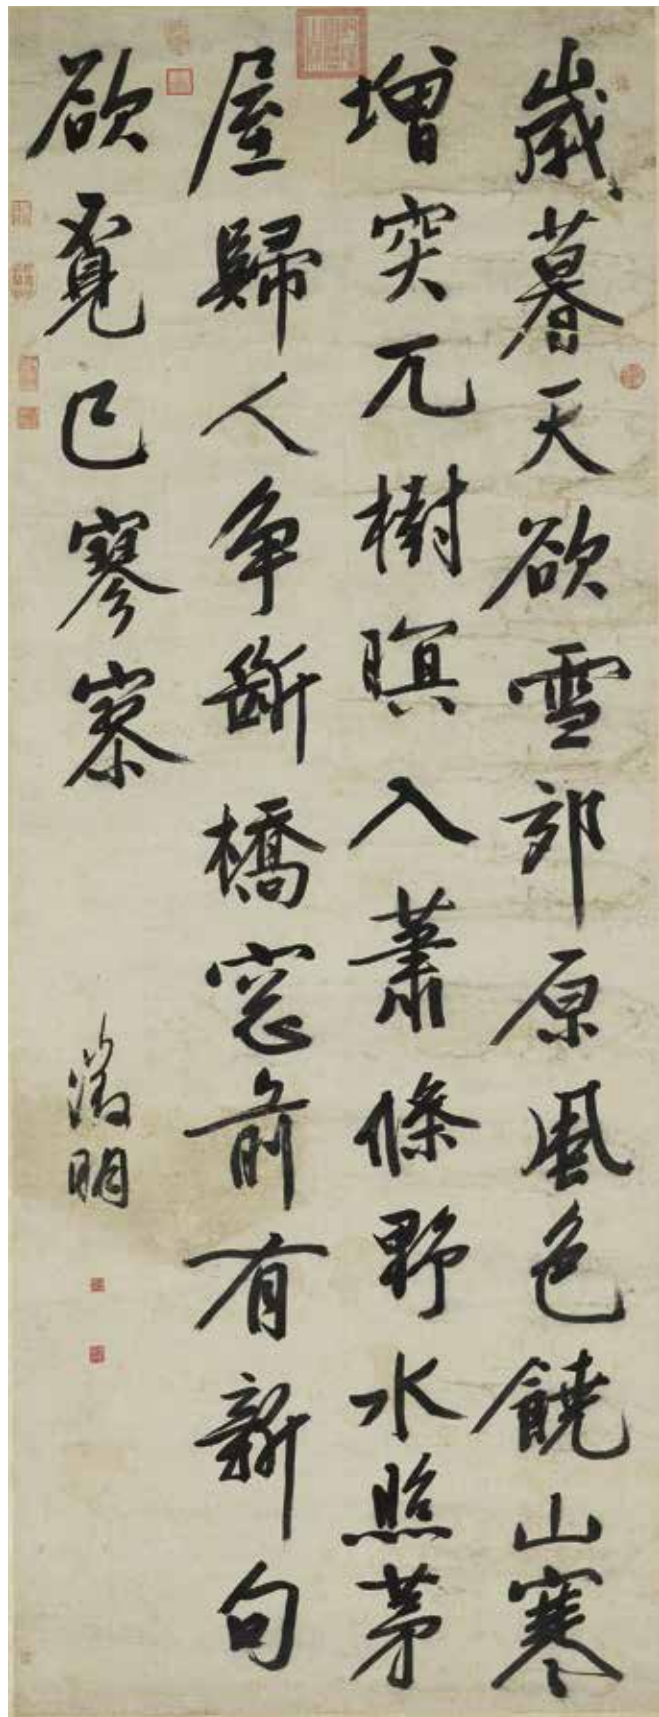 歲暮天欲雪郊原風色饒山寒
增突兀樹暝入蕭條野水照茅
屋歸人争斷橋窓前有新句
欲覔已寥寥
徵明